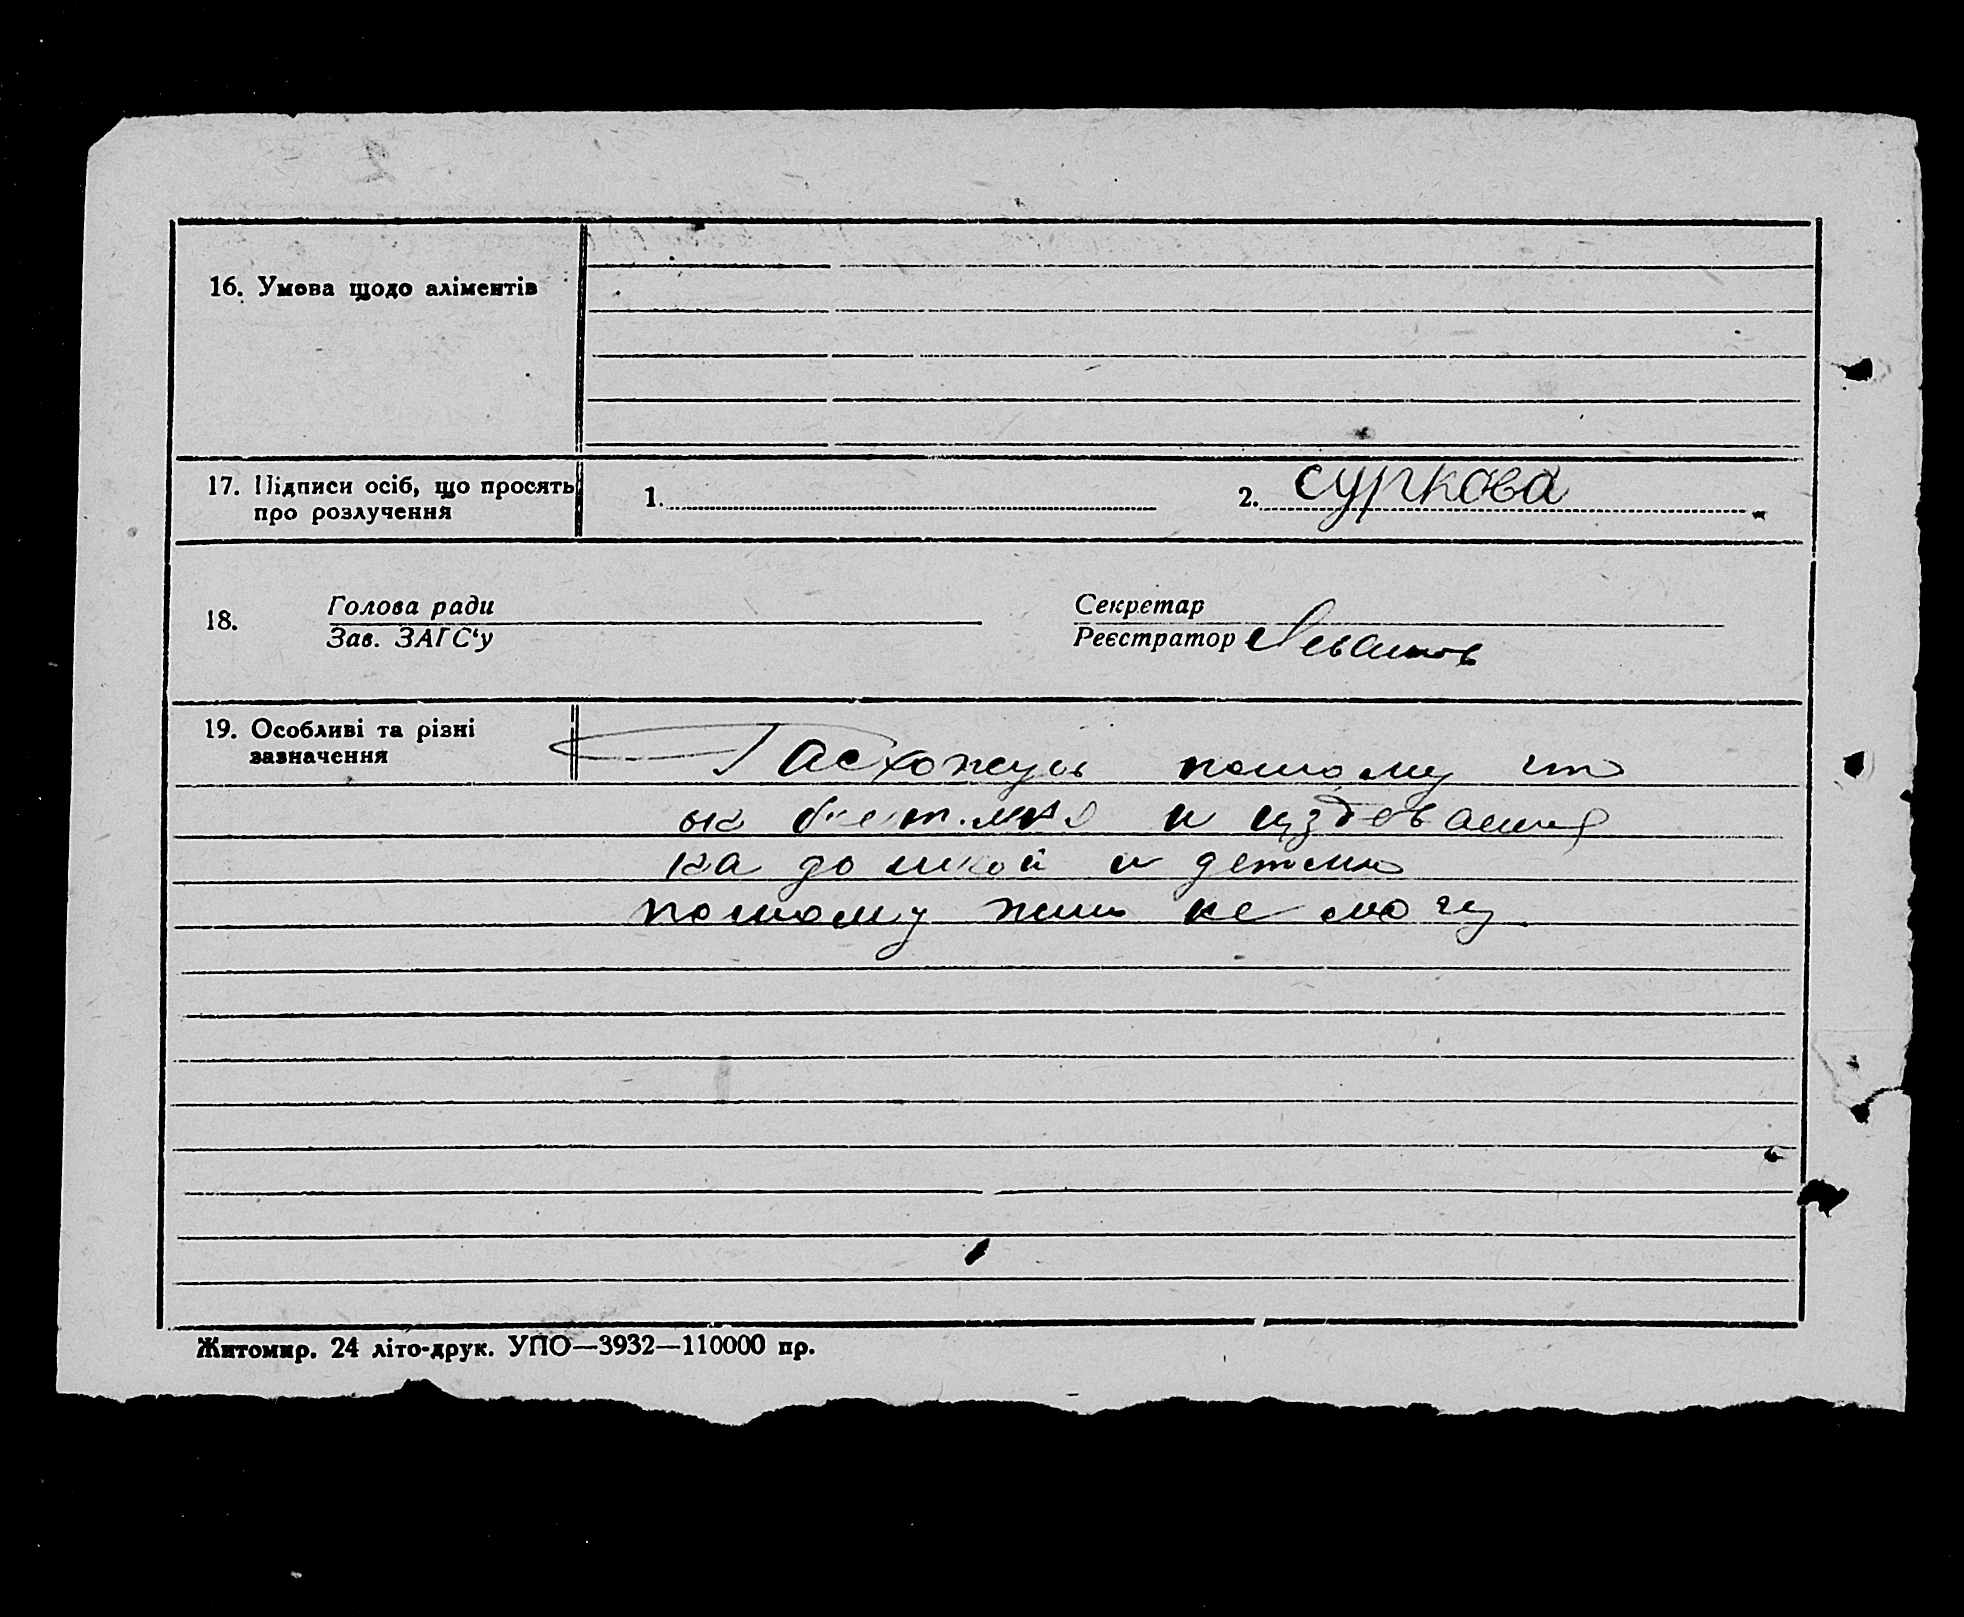 16. Умова щодо аліментів
17. Підписи осіб, що просять
про розлучення
1.
2. Суркова
18.
Голова ради
Зав. ЗАГС‘у
Секретар
Реєстратор
19. Особливі та різні
зазначення
Расхожусь потому что
он бьет меня и издевается
на до мной и детьми
потому жить не могу
Житомир. 24 літо-друк. УПО—3932—110000 пр.